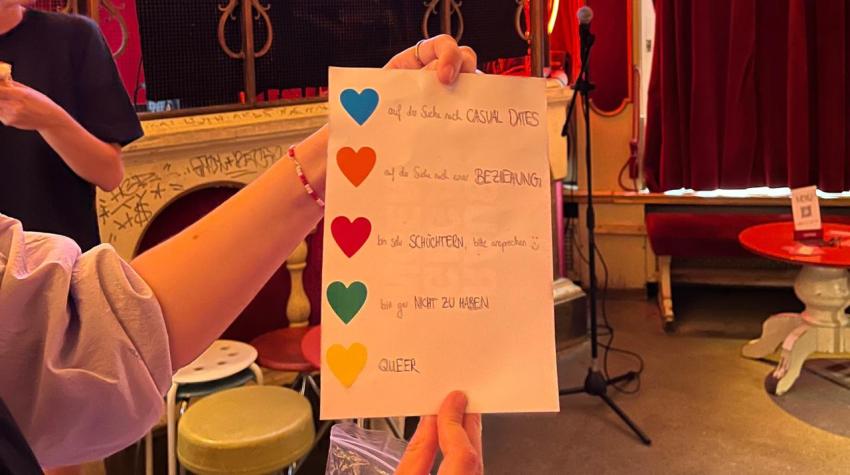 auf der Suche nach CASUAL DATES
auf der Suche nach einer BEZIEHUNG
bin sehr SCHÜCHTERN, bitte ansprechen :)
bin gar NICHT ZU HABEN
QUEER
MENU